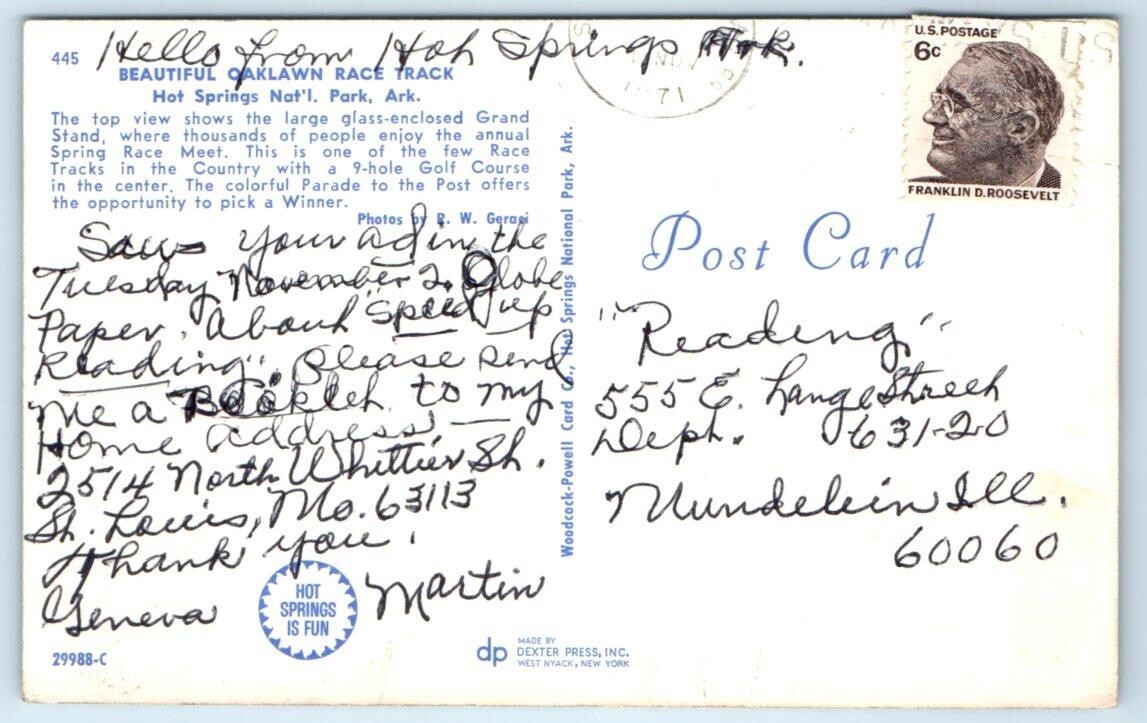 Hello from Hot Springs Ark.
445
BEAUTIFUL OAKLAWN RACE TRACK
Hot Springs Nat'l. Park, Ark.
The top view shows the large glass-enclosed Grand
Stand, where thousands of people enjoy the annual
Spring Race Meet. This is one of the few Race
Tracks in the Country with a 9-hole Golf Course
in the center. The colorful Parade to the Post offers
the opportunity to pick a Winner.
Photos by R. W. Geraci
Saw your ad in the
Tuesday November 2, Globe
Paper. About "Speed up
Reading". Please send
me a Booklet to my
Home address,
2514 North Whittier St.
St. Louis, Mo. 63113
Thank you.
Geneva Martin
HOT
SPRINGS
IS FUN
29988-C
dp
MADE BY
DEXTER PRESS, INC.
WEST NYACK, NEW YORK
Woodcock-Powell Card Co., Hot Springs National Park, Ark.
NO
1971
PM
U.S. POSTAGE
6c
FRANKLIN D. ROOSEVELT
US
Post Card
"Reading"
555 E. Lange Street
Dept. 631-20
Mundelein Ill.
60060